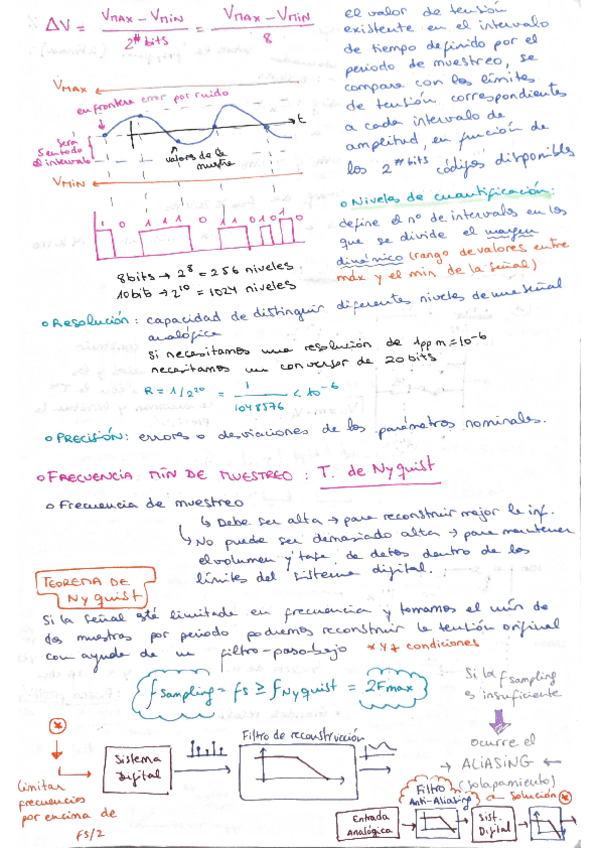 ΔV = VMAX - VMIN / 2^#bits = VMAX - VMIN / 8
el valor de tensión
existente en el intervalo
de tiempo definido por el
periodo de muestreo, se
compara con los límites
de tensión correspondientes
a cada intervalo de
amplitud, en función de
los 2^#bits códigos disponibles
VMAX
en frontera error por ruido
t
será
5 en todo
el intervalo
valores de la
muestra
VMIN
1 0 1 1 1 0 1 1 0 1 0 1 0
8bits → 2^8 = 256 niveles
10bit → 2^10 = 1024 niveles
o Niveles de cuantificación:
define el nº de intervalos en los
que se divide el margen
dinámico (rango de valores entre
máx y el min de la señal)
o Resolución: capacidad de distinguir diferentes niveles de una señal
analógica
Si necesitamos una resolución de 1ppm = 10^-6
necesitamos un conversor de 20bits
R = 1/2^20 = 1/1048576 < 10^-6
o PRECISIÓN: errores o desviaciones de los parámetros nominales.
o FRECUENCIA MÍN DE MUESTREO: T. de Nyquist
o Frecuencia de muestreo
↳ Debe ser alta → para reconstruir mejor la inf.
↳ No puede ser demasiado alta → para mantener
el volumen y tasa de datos dentro de los
límites del sistema digital.
TEOREMA DE
Nyquist
Si la señal esté limitada en frecuencia y tomamos el mín de
dos muestras por periodo podremos reconstruir la tensión original
con ayuda de un filtro-paso-bajo * y + condiciones
fsampling = fs ≥ fNyquist = 2Fmax
Si la fsampling
es insuficiente
ocurre el
→ ALIASING ←
(solapamiento)
*
limitar
frecuencias
por encima de
FS/2
Sistema
Digital
Filtro de reconstrucción
Filtro
Anti-Aliasing
Solución *
Entrada
Analógica
Sist.
Digital